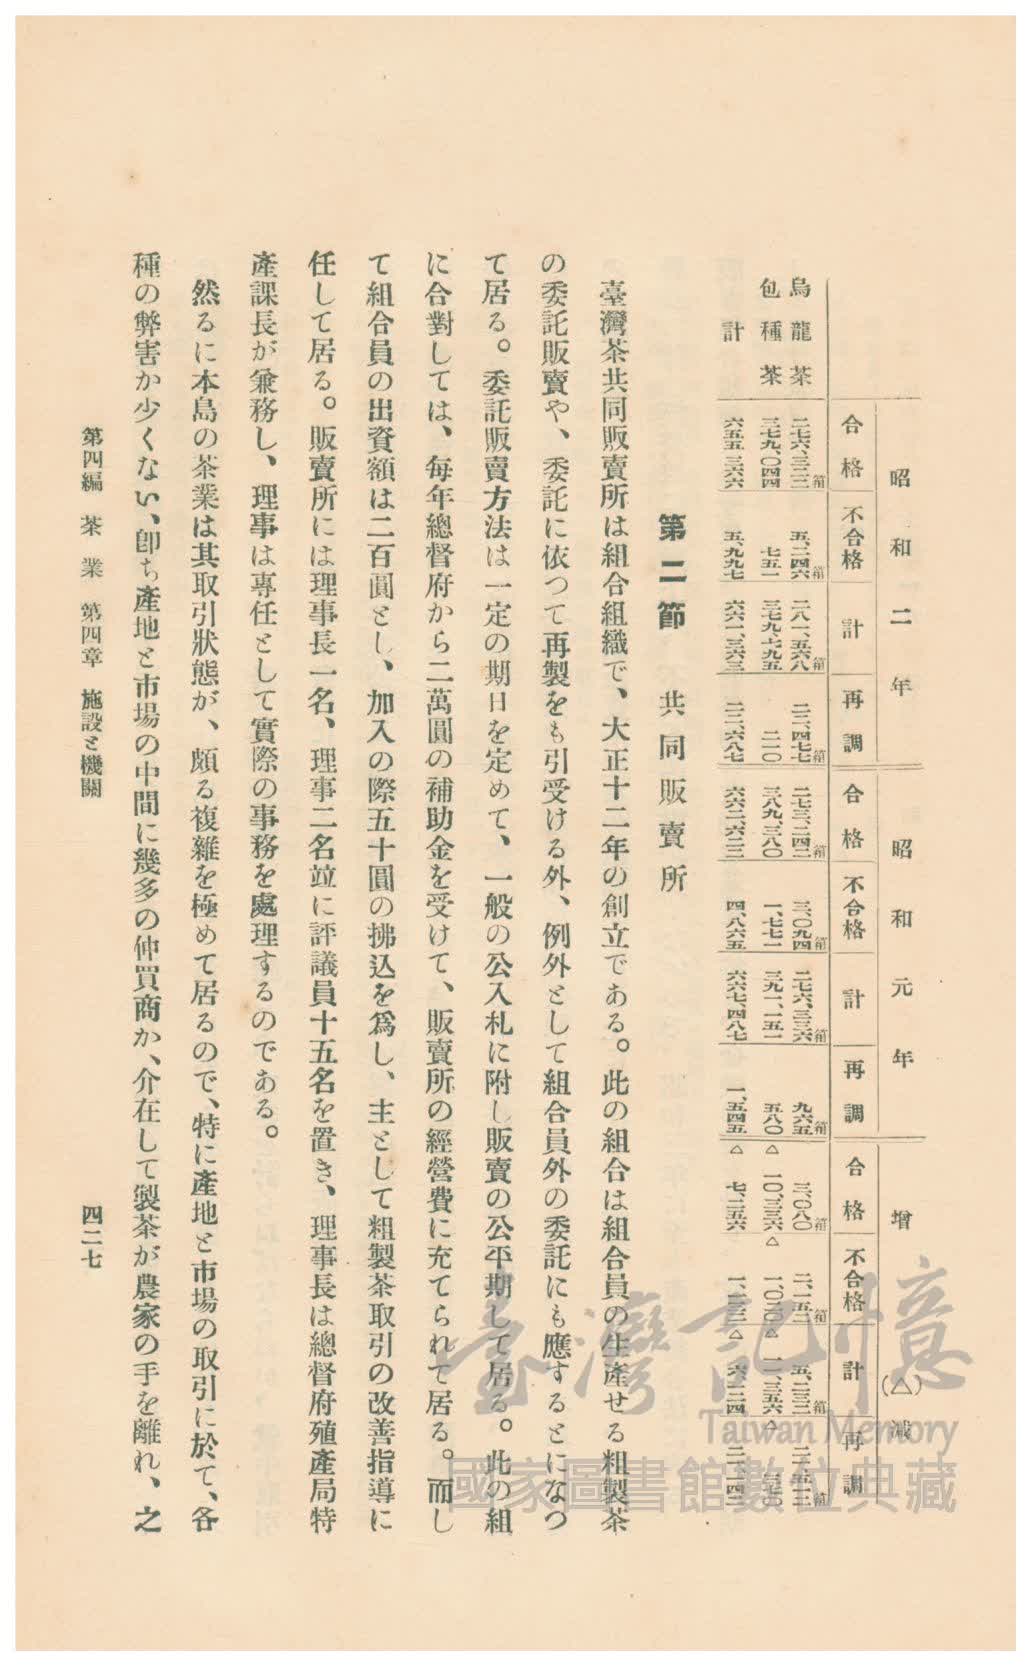 昭和二年 昭和元年 增(△)減
合格 不合格 計 再調 合格 不合格 計 再調 合格 不合格 計 再調
烏龍茶 二七六、三二二箱 五、二四六箱 二八一、五六八箱 二二、四七七箱 二七三、二四二箱 三、〇九四箱 二七六、三三六箱 九六五箱 三、〇八〇箱 二、一五二箱 五、二三二箱 二一、五一二箱
包種茶 三七九、〇四四 七五一 三七九、七九五 二一〇 三八九、三八〇 一、七七一 三九一、一五一 五八〇 △一〇、三三六 △一、〇二〇 △一一、三五六 △三七〇
計 六五五、三六六 五、九九七 六六一、三六三 二二、六八七 六六二、六二二 四、八六五 六六七、四八七 一、五四五 △七、二五六 一、一三二 △六、一二四 二一、一四二
第二節 共同販賣所
臺灣茶共同販賣所は組合組織で、大正十二年の創立である。此の組合は組合員の生產せる粗製茶
の委託販賣や、委託に依つて再製をも引受ける外、例外として組合員外の委託にも應するとになつ
て居る。委託販賣方法は一定の期日を定めて、一般の公入札に附し販賣の公平期して居る。此の組
に合對しては、每年總督府から二萬圓の補助金を受けて、販賣所の經營費に充てられて居る。而し
て組合員の出資額は二百圓とし、加入の際五十圓の拂込を爲し、主として粗製茶取引の改善指導に
任して居る。販賣所には理事長一名、理事二名竝に評議員十五名を置き、理事長は總督府殖產局特
產課長が兼務し、理事は專任として實際の事務を處理するのである。
然るに本島の茶業は其取引狀態が、頗る複雜を極めて居るので、特に產地と市場の取引に於て、各
種の弊害か少くない、卽ち產地と市場の中間に幾多の仲買商か、介在して製茶が農家の手を離れ、之
第四編 茶業 第四章 施設と機關
四二七
臺灣記憶
Taiwan Memory
國家圖書館數位典藏